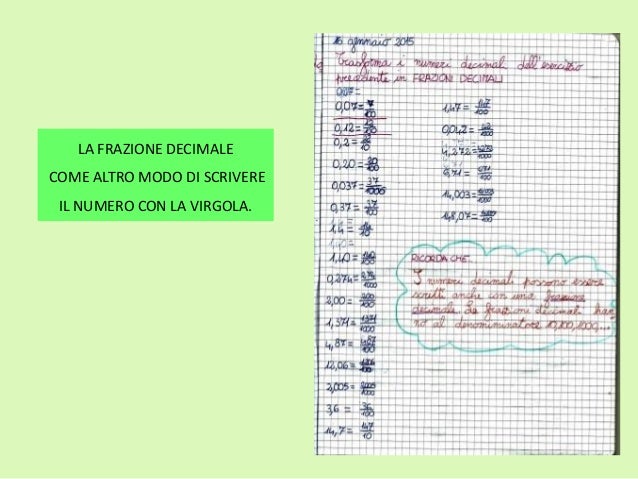 LA FRAZIONE DECIMALE
COME ALTRO MODO DI SCRIVERE
IL NUMERO CON LA VIRGOLA.
16 gennaio 2015
Trasforma i numeri decimali dell'esercizio
precedente in FRAZIONI DECIMALI
0,07 = 7/100
0,12 =
0,2 =
0,20 = 20/100
0,037 = 37/1000
0,37 = 37/100
1,4 = 14/10
1,40 = 140/100
0,274 = 274/1000
2,00 = 200/100
1,371 = 1371/1000
4,87 = 487/100
12,06 = 1206/100
2,005 = 2005/1000
3,6 = 36
14,7 = 147/10
1,47 =
0,042 =
4,272 =
0,71 =
14,003 =
RICORDA CHE:
I numeri decimali possono essere
scritti anche con una frazione
decimale. Le frazioni decimali han
no al denominatore 10,100,1000,...